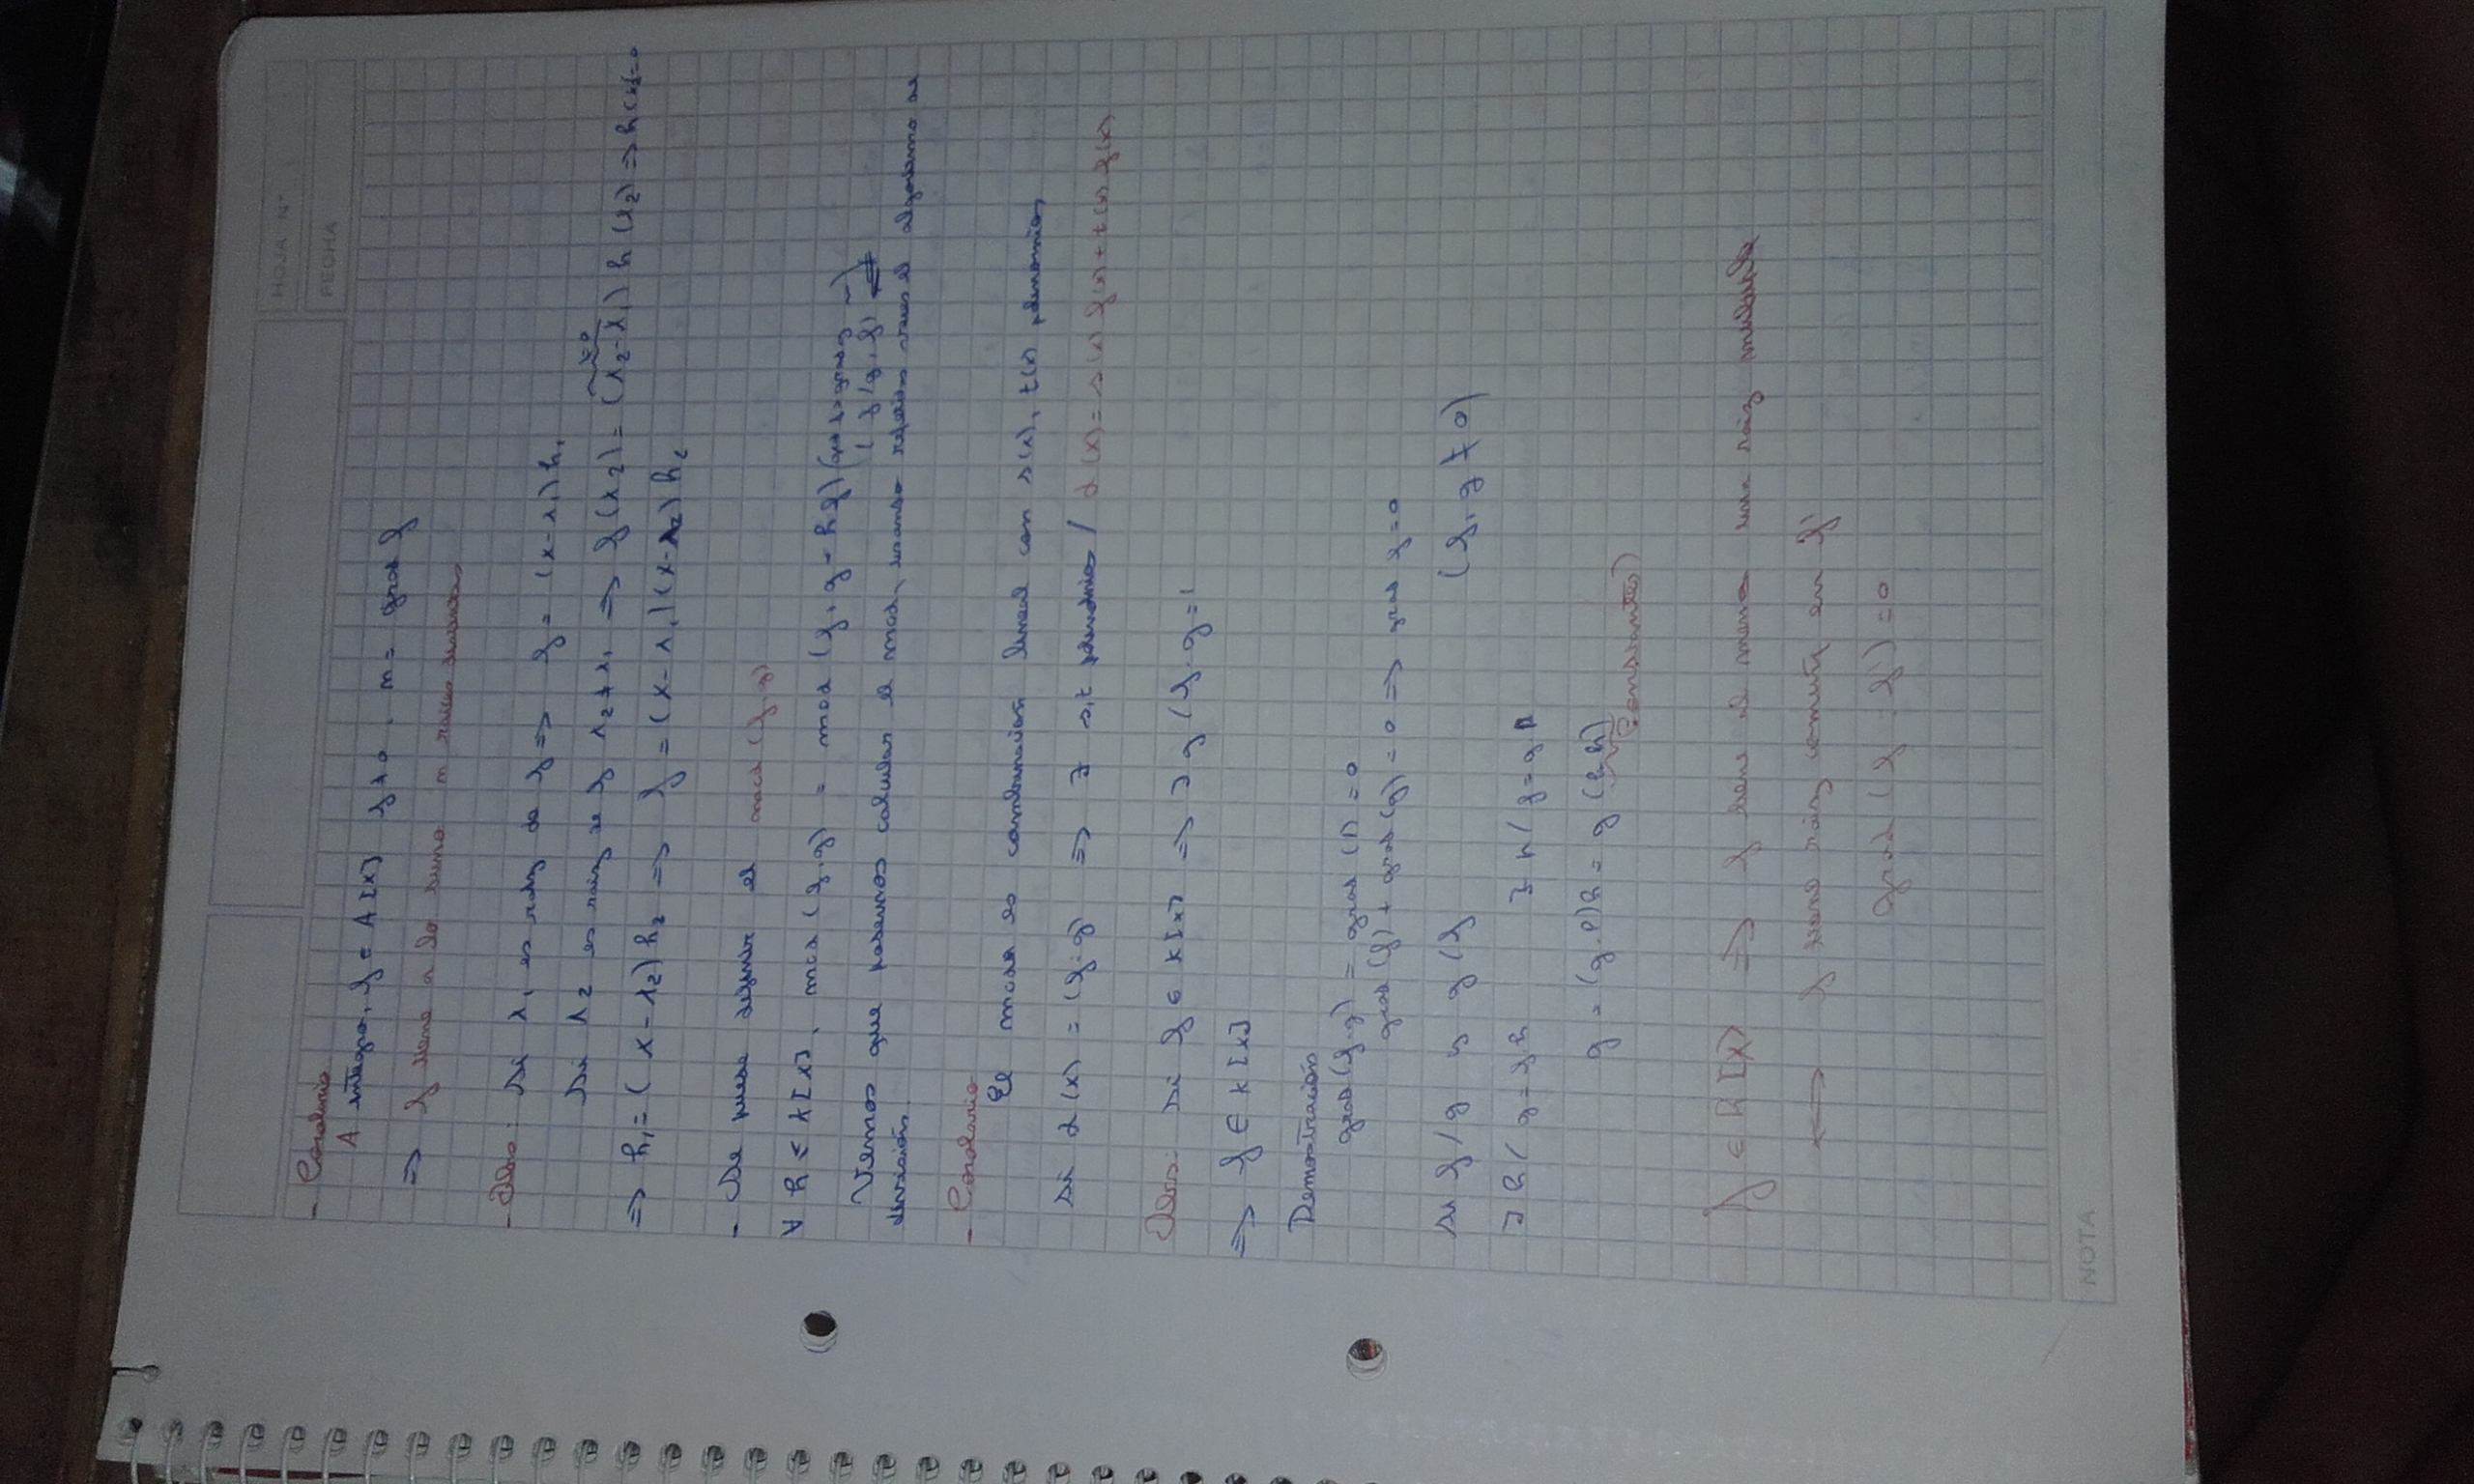 HOJA N°
FECHA
- Corolario
A integro, f ∈ A[x] f ≠ 0, n = grad f
⇒ f tiene a lo sumo n raices distintas
- Obs: Si λ₁ es raiz de f ⇒ f = (x-λ₁)h₁
Si λ₂ es raiz de f λ₂ ≠ λ₁ ⇒ f(λ₂) = (λ₂-λ₁) h(λ₂) ⇒
≠0
⇒ h₁ = (x-λ₂)h₂ ⇒ f = (x-λ₁)(x-λ₂)h₂
- Se puede definir el mcd (f, g)
∀ h ∈ K[x], mcd (f, g) = mcd (f, g - hf)
Vemos que podemos calcular el mcd, usando repetidas veces el algoritmo de
división.
- Corolario
El mcd es combinación lineal con s(x), t(x) polinomios
Si d(x) = (f, g) ⇒ ∃ s, t polinomios / d(x) = s(x) f(x) + t(x) g(x)
Obs: Si f ∈ K[x] ⇒ ∃ g / f·g = 1
⇒ f ∈ K[x]
Demostración
grad (f·g) = grad (1) = 0
grad (f) + grad (g) = 0 ⇒ grad f = 0
Si f/g y g/f (f, g ≠ 0)
∃ h / g = fh
g = g
Constantes
f ∈ K[x] ⇒ f tiene al menos una raiz multiple
⟷ f tiene raiz común en f'
grad (f, f') = 0
NOTA